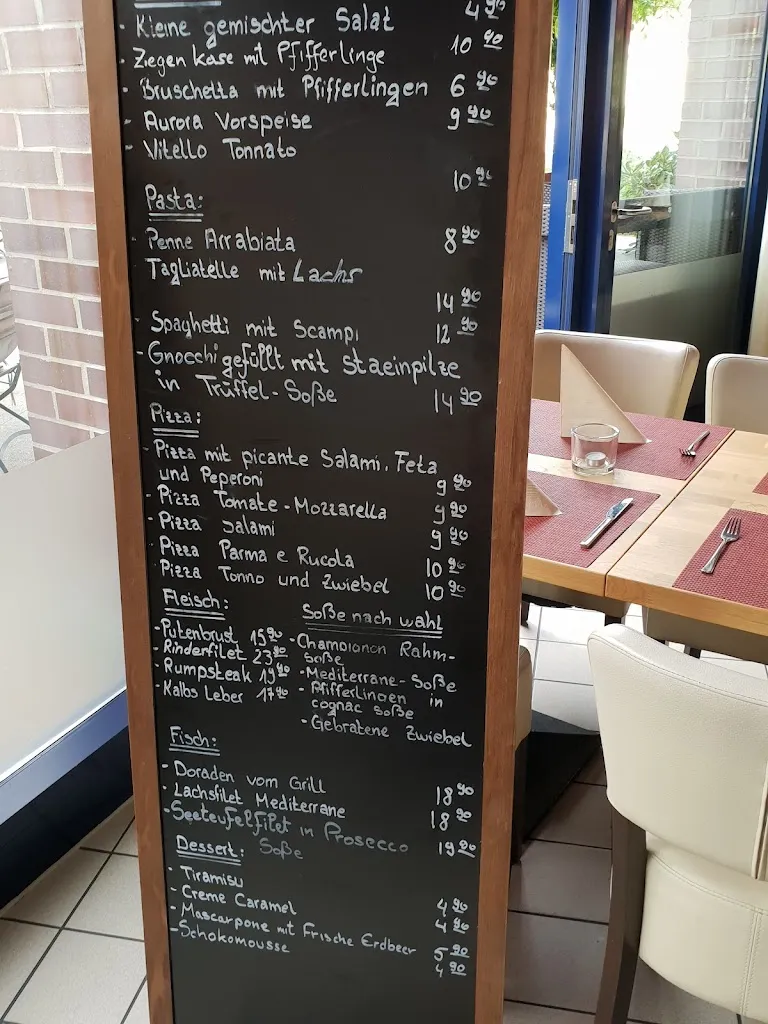 - Kleine gemischter Salat 4 90
- Ziegen Käse mit Pfifferlinge 10 90
- Bruschetta mit Pfifferlingen 6 90
- Aurora Vorspeise 9 90
- Vitello Tonnato
10 90
Pasta:
- Penne Arrabiata 8 90
Tagliatelle mit Lachs
14 90
- Spaghetti mit Scampi 12 90
- Gnocchi gefüllt mit Staeinpilze
in Trüffel-Soße 14 90
Pizza:
- Pizza mit picante Salami, Feta
und Peperoni 9 90
- Pizza Tomate-Mozzarella 9 90
- Pizza Salami 9 90
- Pizza Parma e Rucola 10 90
- Pizza Tonno und Zwiebel 10 90
Fleisch:
- Putenbrust 15 90
- Rinderfilet 23 90
- Rumpsteak 19 90
- Kalbs Leber 17 90
Soße nach wahl
- Champignon Rahm-
Soße
- Mediterrane-Soße
- Pfifferlingen in
cognac Soße
- Gebratene Zwiebel
Fisch:
- Doraden vom Grill 18 90
- Lachsfilet Mediterrane 18 90
- Seeteufelfilet in Prosecco 19 90
Soße
Dessert:
- Tiramisu 4 90
- Creme Caramel 4 90
- Mascarpone mit Frische Erdbeer 5 90
- Schokomousse 4 90